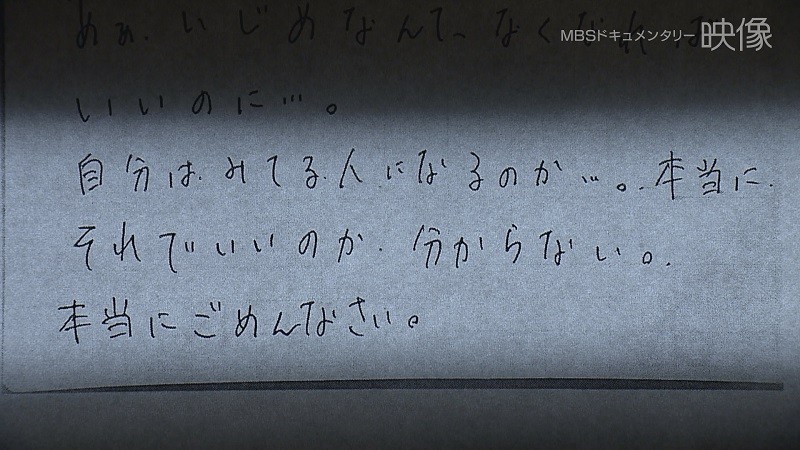 MBSドキュメンタリー 映像
めぇ、いじめなんて、なくなれば
いいのに…。
自分は、みてる人になるのか…。本当に
それでいいのか、分からない。
本当にごめんなさい。